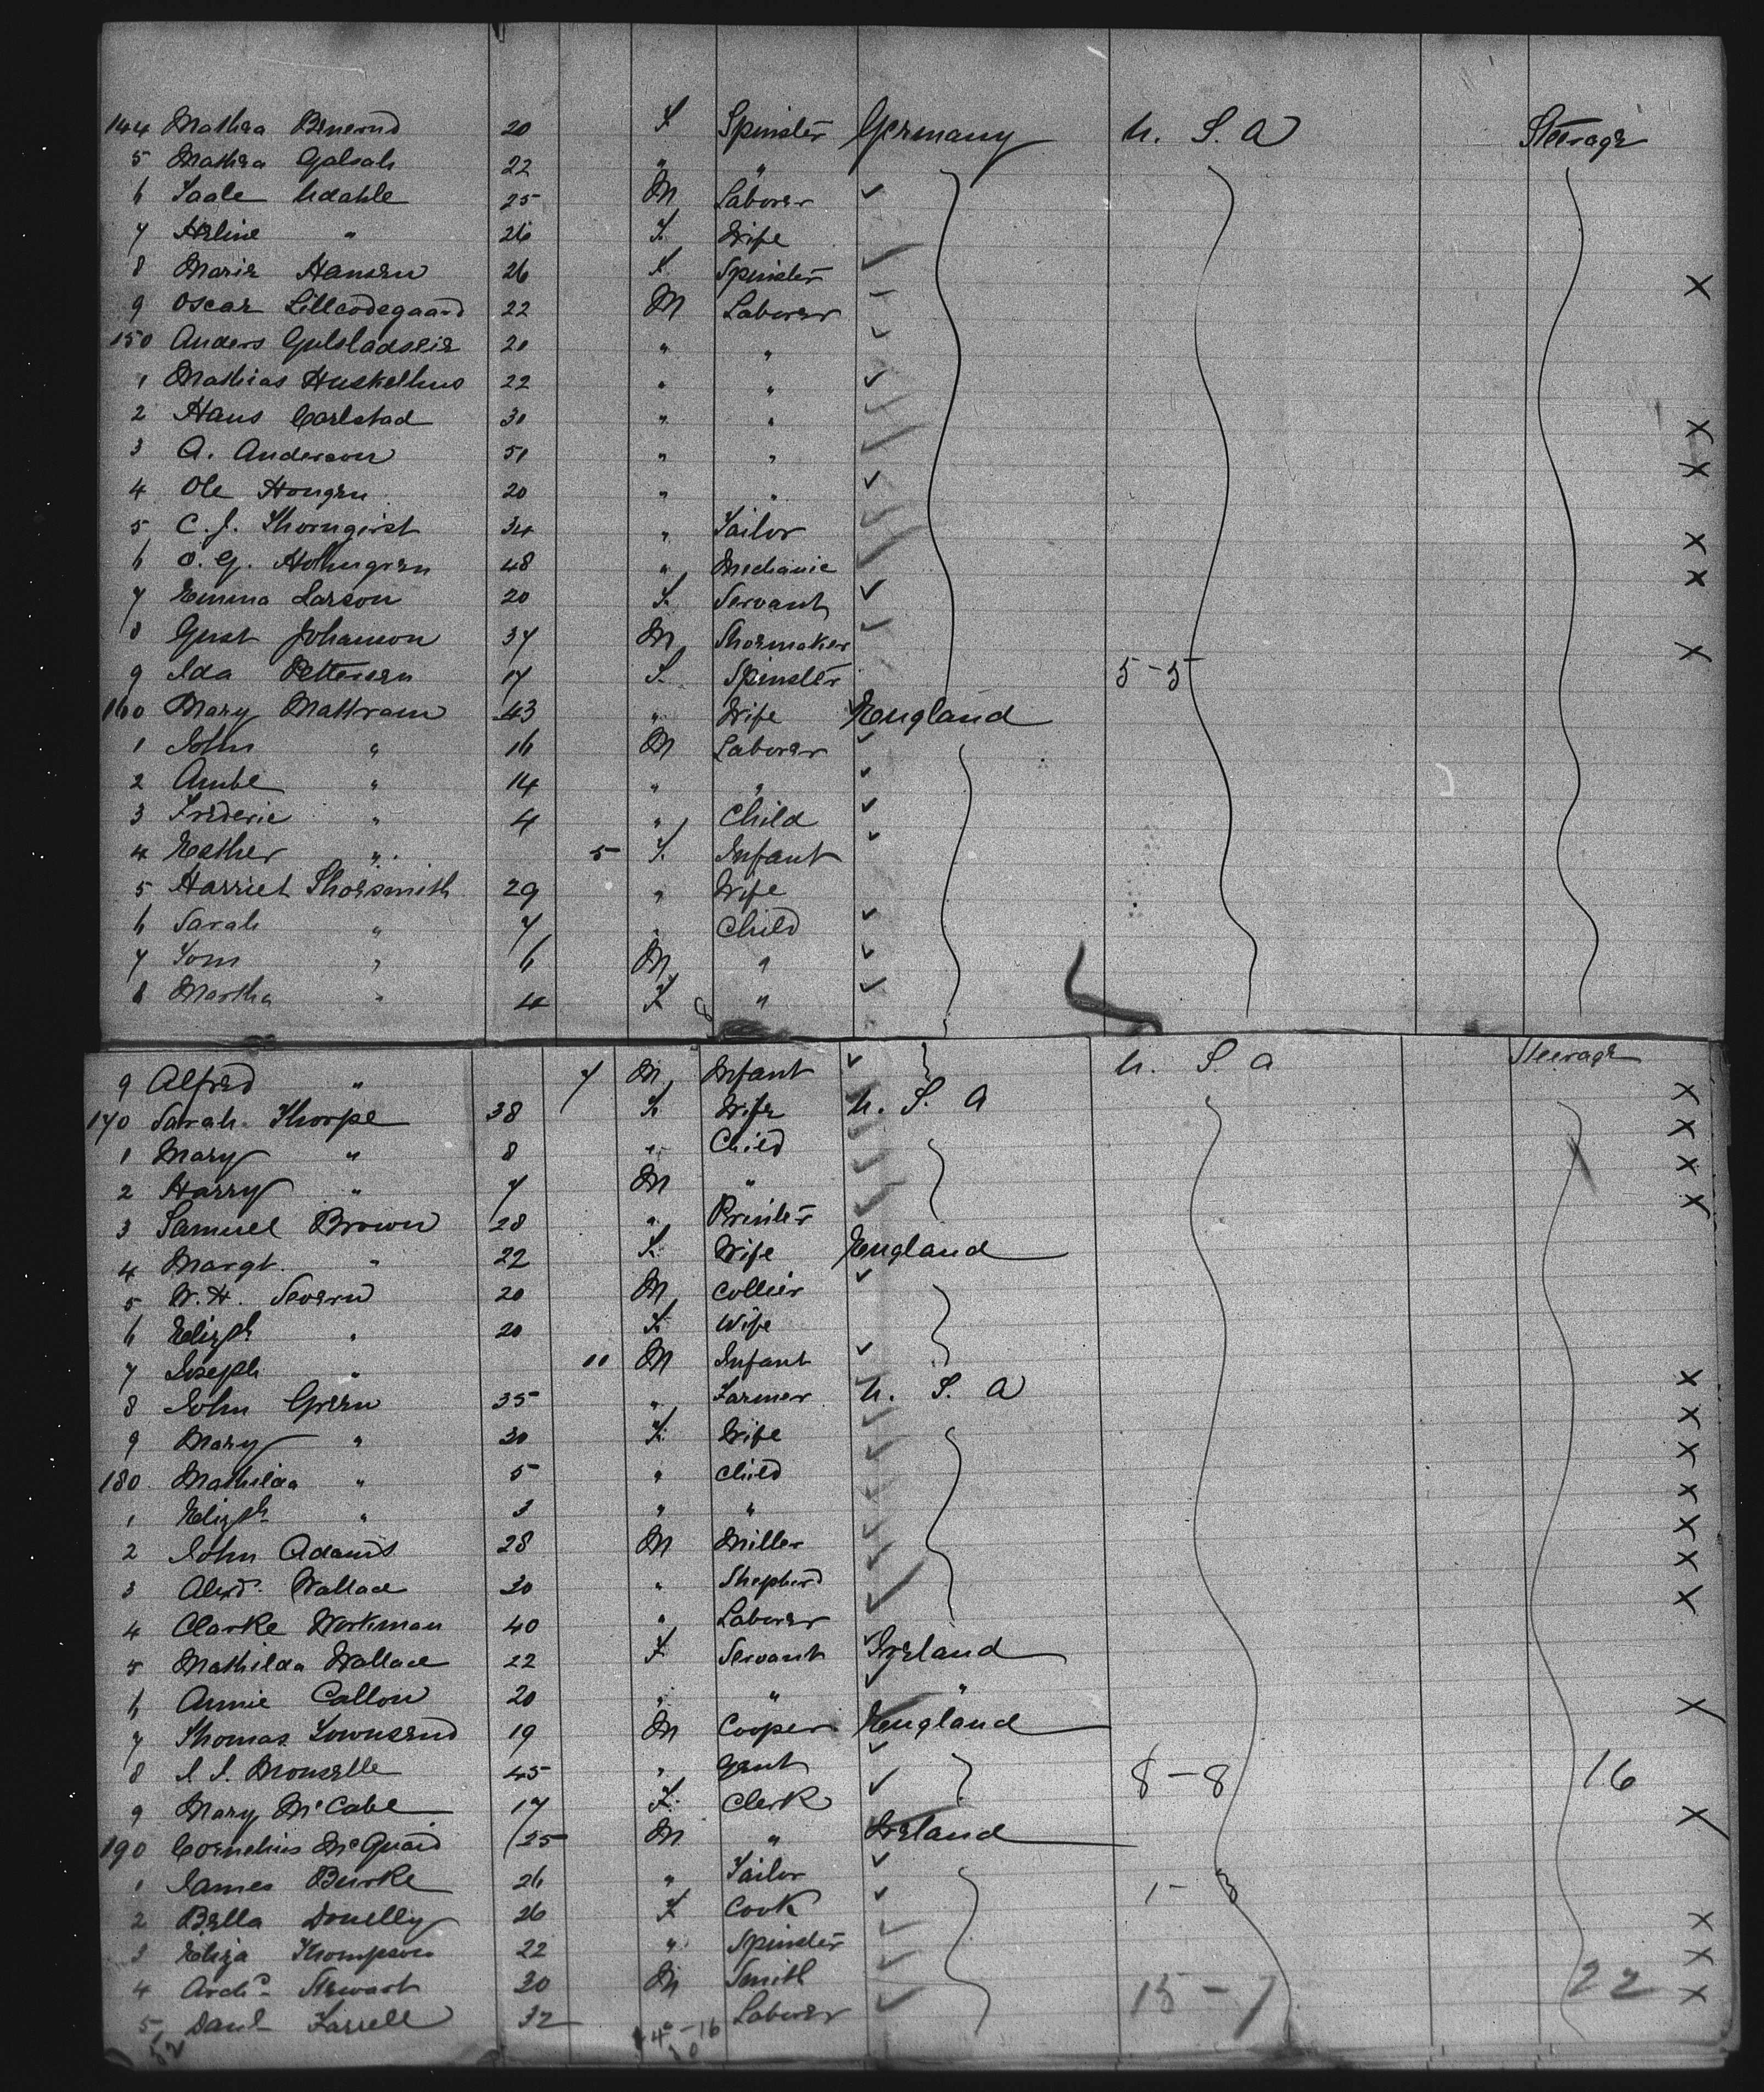 144 Mathea 20 F. Spinster Germany U. S. A Steerage
5 Mathea 22 " "
6 25 M Laborer
7 " 26 F. Wife
8 Marie Hansen 26 F. Spinster
9 Oscar Lilleodegaard 22 M Laborer
150 Anders " "
1 Mathias 22 " "
2 Hans Carlstad 30 " "
3 A. Anderson 51 " "
4 Ole Hougen 20 " "
5 C. J. Thornqvist 34 " Tailor
6 O. G. Holmgren 48 " Mechanic
7 Emma Larson 20 F. Servant
8 Gust Johanson 37 M Shoemaker
9 Ida Pettersen 17 F. Spinster 5-5
160 Mary Mattram 43 " Wife England
1 John " 16 M Laborer
2 " 14 " "
3 Frederic " 4 " Child
4 Esther " 5 F. Infant
5 Harriet Shoesmith 29 " Wife
6 Sarah " 7 " Child
7 Tom " 6 M "
8 Martha " 4 F "
9 Alfred " 7 M Infant U. S. A Steerage
170 Sarah Thorpe 38 F. Wife U. S. A
1 Mary " 8 " Child
2 Harry " 7 M "
3 Samuel Brown 28 " Printer
4 Margt. " 22 F. Wife England
5 W. H. Severn 20 M Collier
6 Elizth " 20 F. Wife
7 Joseph " 11 M Infant
8 John Green 35 " Farmer U. S. A
9 Mary " 30 F. Wife
180 Mathilda " 5 " Child
1 Elizth " 3 " "
2 John Adams 28 M Miller
3 Alexd. Wallace 30 " Shepherd
4 Clarke Workman 40 " Laborer
5 Mathilda Wallace 22 F Servant Ireland
6 Annie Callon 20 " " "
7 Thomas Townsend 19 M Cooper England
8 45 " Gent 8-8 16
9 Mary McCabe 17 F. Clerk
190 Cornelius McQuaid 25 M " Ireland
1 James Burke 26 " Tailor
2 Bella Donelly 26 F Cook
3 Eliza Thompson 22 " Spinster
4 Archd. Stewart 30 M Smith 15-7 22
5 Danl Farrell 32 Laborer